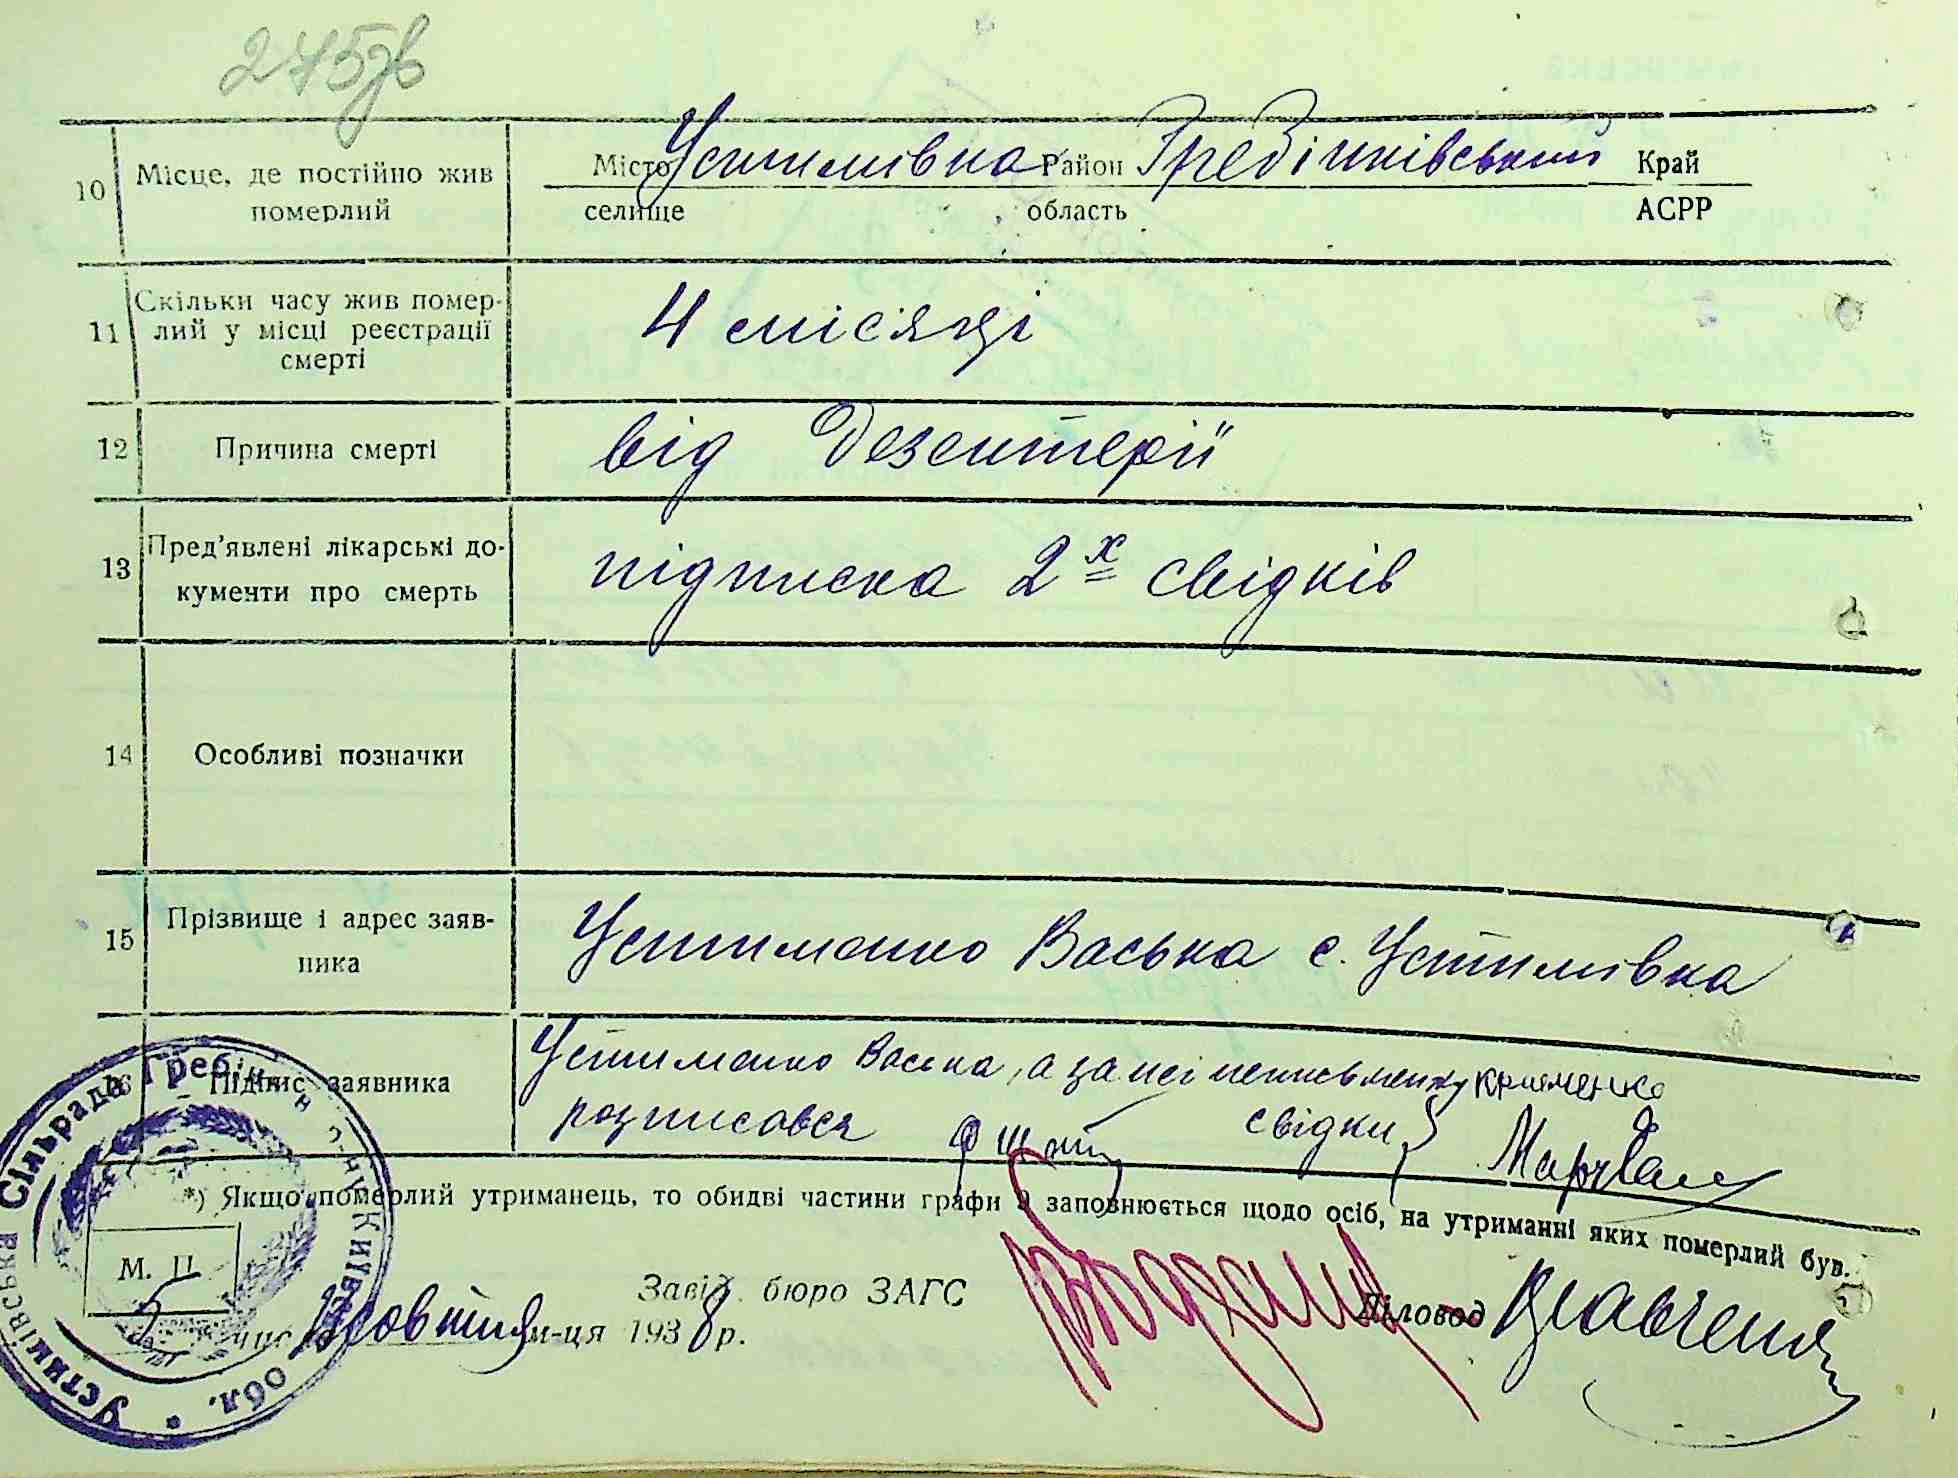 275зв
10 Місце, де постійно жив померлий
Місто Устимівка Район Гребінківський Край
селище область АСРР
11 Скільки часу жив помер-
лий у місці реєстрації
смерті
4 місяці
12 Причина смерті
від Дезентерії
13 Пред'явлені лікарські до-
кументи про смерть
підписка 2х свідків
14 Особливі позначки
15 Прізвище і адрес заяв-
ника
Устименко Васька с. Устимівка
16 Підпис заявника
Устименко Васька, а за неї неписьменну
розписався свідки
*) Якщо померлий утриманець, то обидві частини графи 9 заповнюється щодо осіб, на утриманні яких померлий був.
М. П.
Завід. бюро ЗАГС
Діловод
5 числа Жовтня м-ця 1938 р.
Сільрада Гребінк Київ обл. * Усти